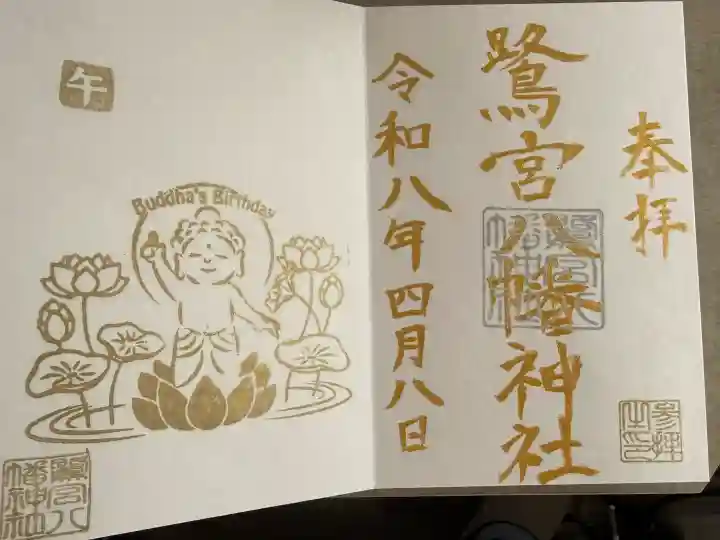 奉拝
鷺宮八幡神社
令和八年四月八日
参拝之印
鷺宮八幡神社
午
Buddha's Birthday
鷺宮八幡神社